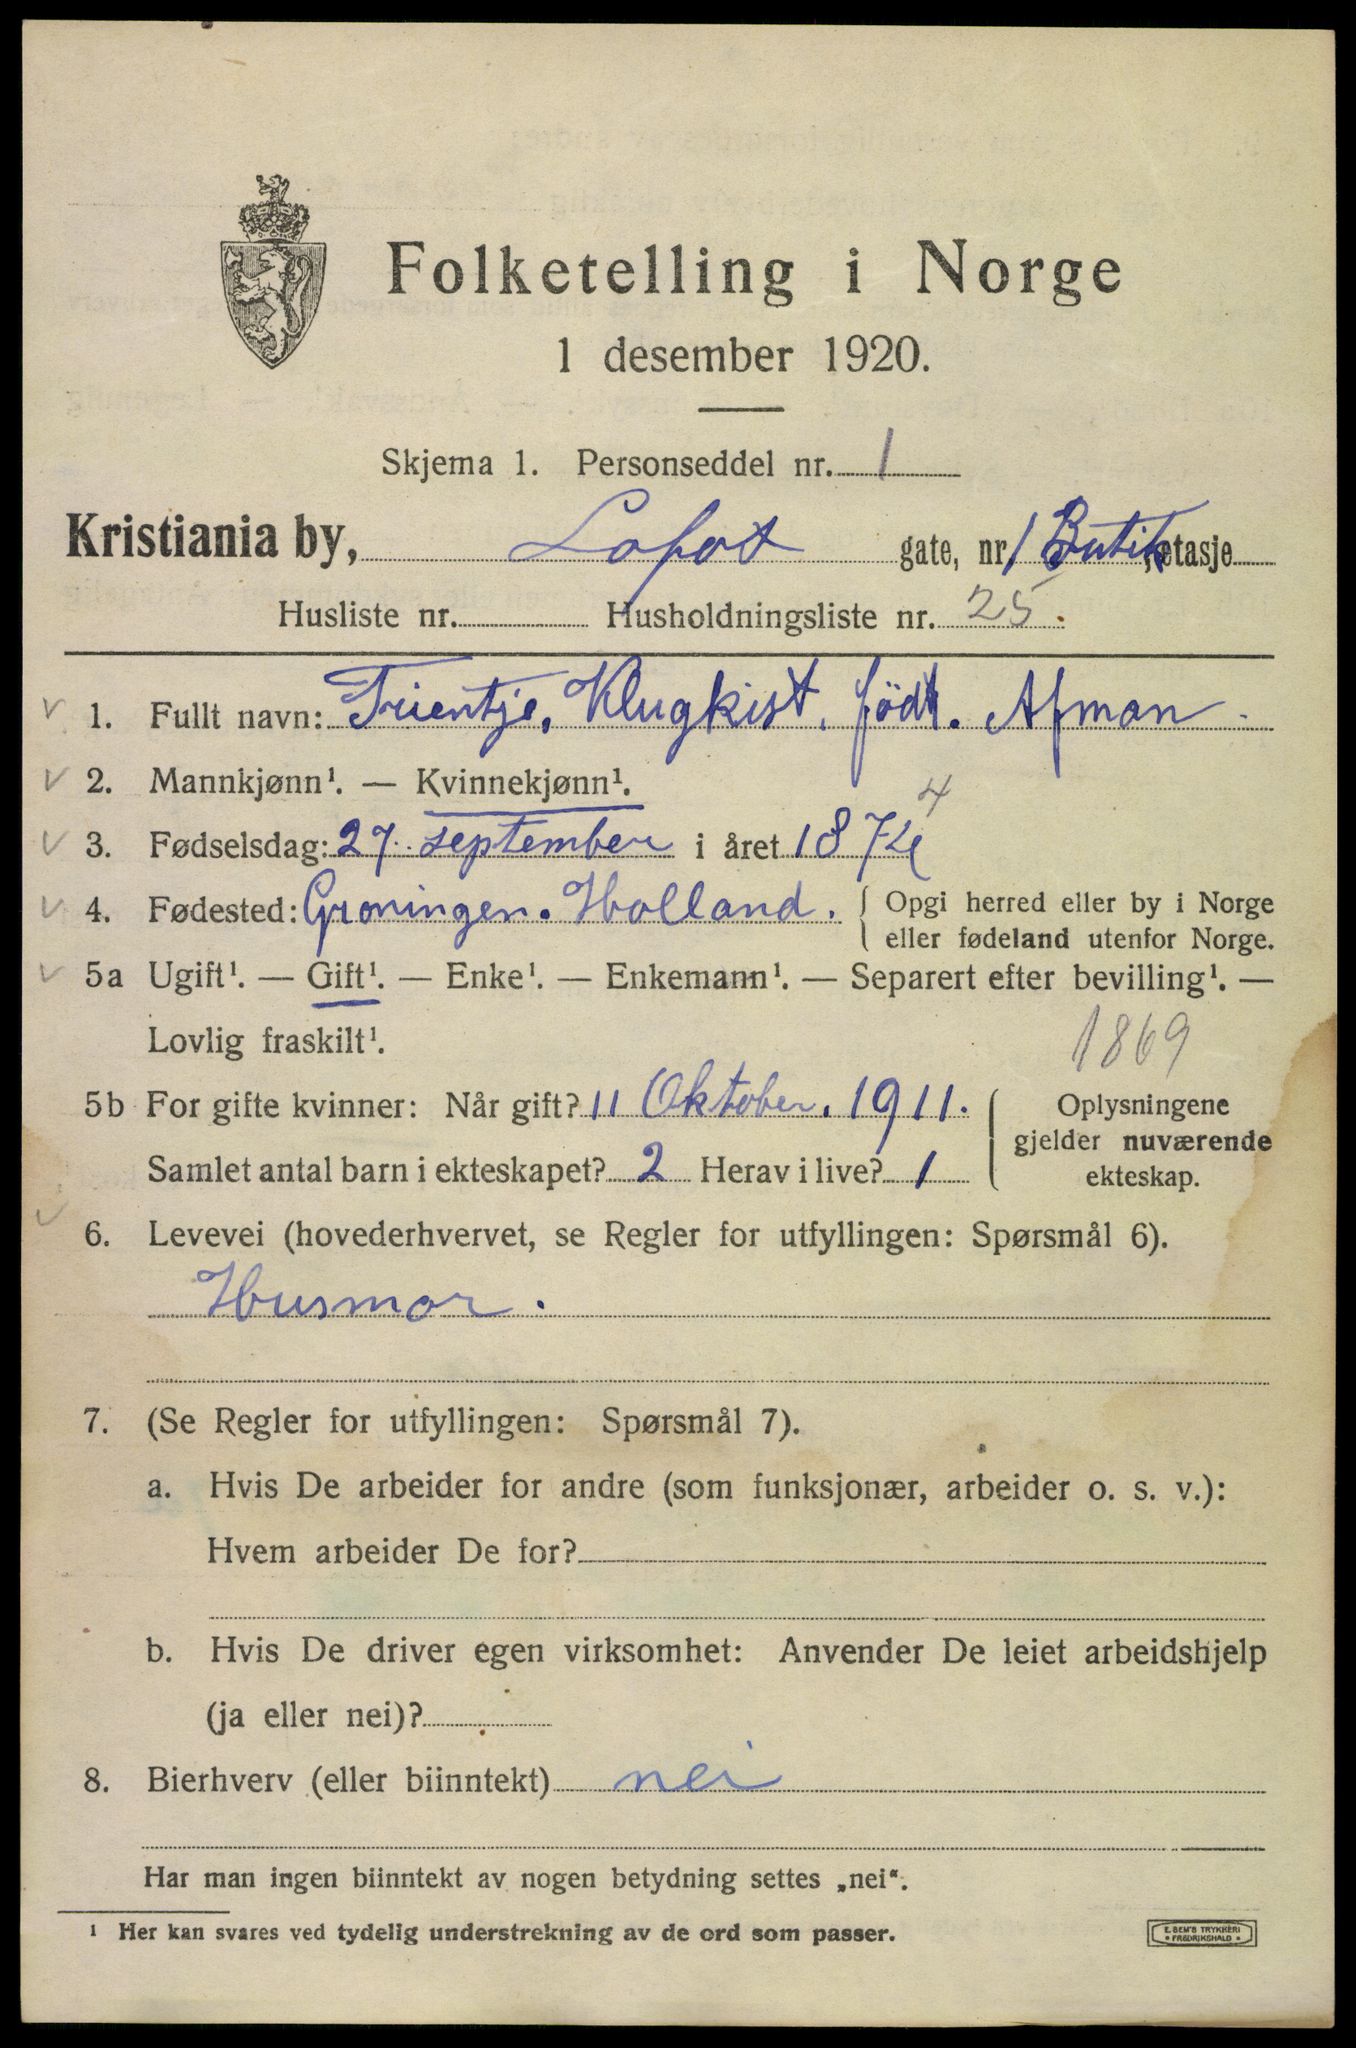 Folketelling i Norge
1 desember 1920.
Skjema 1. Personseddel nr. 1
Kristiania by, Lofot gate, nr. 1 Butik, etasje
Husliste nr. Husholdningsliste nr. 25.
1. Fullt navn: Trientje, Klugkist, født. Afman
2. Mannkjønn¹. — Kvinnekjønn¹.
4
3. Fødselsdag: 27. september i året 1874
4. Fødested: Groningen. Holland. { Opgi herred eller by i Norge
eller fødeland utenfor Norge.
5a Ugift¹. — Gift¹. — Enke¹. — Enkemann¹. — Separert efter bevilling¹. —
Lovlig fraskilt¹. 1869
5b For gifte kvinner: Når gift? 11 Oktober. 1911. { Oplysningene
gjelder nuværende
Samlet antal barn i ekteskapet? 2 Herav i live? 1 ekteskap.
6. Levevei (hovederhvervet, se Regler for utfyllingen: Spørsmål 6).
Husmor.
7. (Se Regler for utfyllingen: Spørsmål 7).
a. Hvis De arbeider for andre (som funksjonær, arbeider o. s. v.):
Hvem arbeider De for?
b. Hvis De driver egen virksomhet: Anvender De leiet arbeidshjelp
(ja eller nei)?
8. Bierhverv (eller biinntekt) nei
Har man ingen biinntekt av nogen betydning settes „nei“.
¹ Her kan svares ved tydelig understrekning av de ord som passer.
E. SEM'S TRYKKERI
• FREDRIKSHALD •